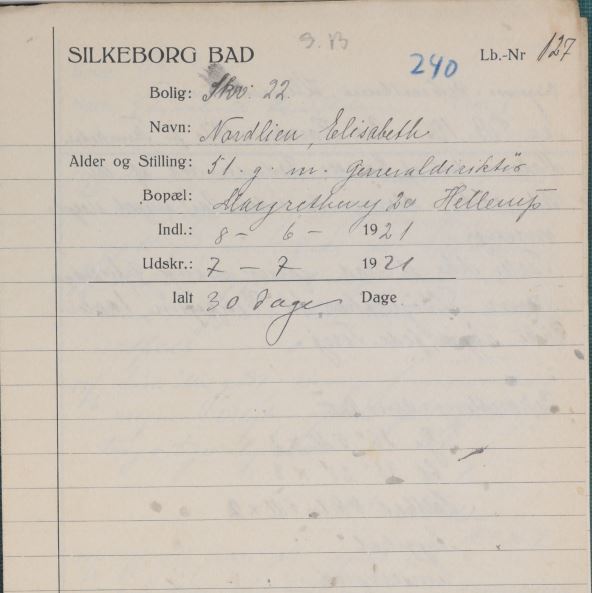 S.B
SILKEBORG BAD 240 Lb.-Nr 127
Bolig: Skv. 22.
Navn: Nordlien, Elisabeth
Alder og Stilling: 51. g. m. Generaldirektör
Bopæl: Margrethevej 20 Hellerup
Indl.: 8 - 6 - 1921
Udskr.: 7 - 7 1921
Ialt 30 dage Dage